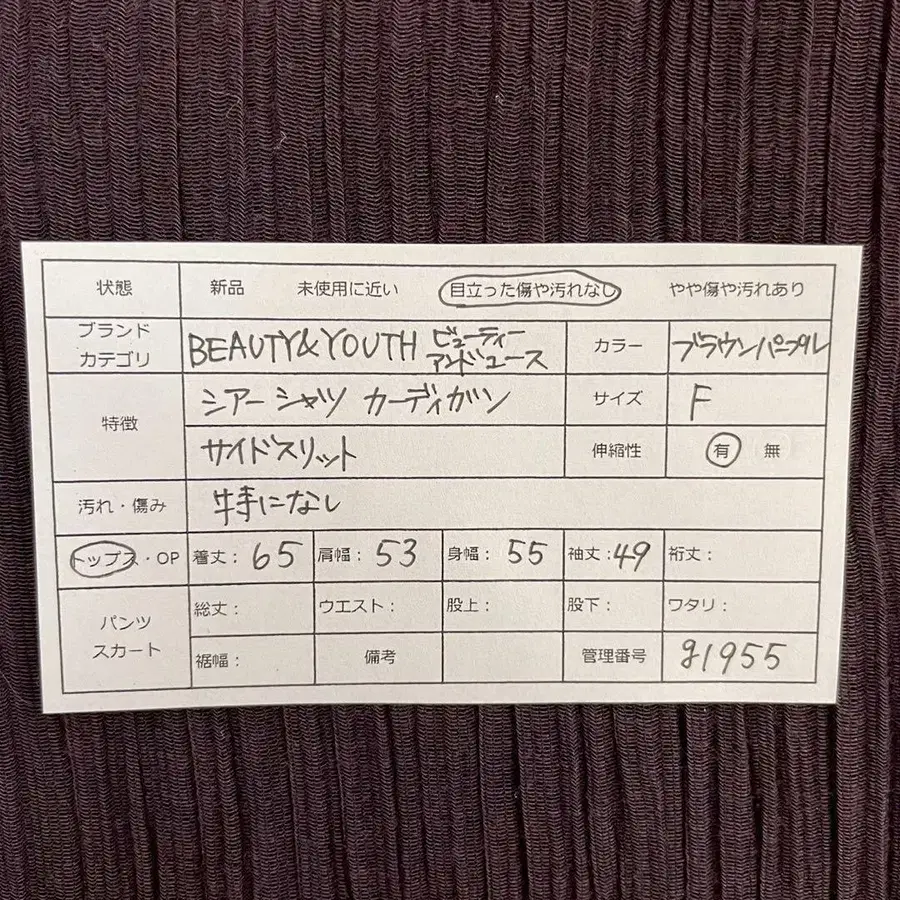 状態 新品 未使用に近い 目立った傷や汚れなし やや傷や汚れあり
ブランド
カテゴリ
BEAUTY&YOUTH ビューティー
アンドユース
カラー ブラウンパープル
特徴 シアー シャツ カーディガン サイズ F
サイドスリット 伸縮性 有 無
汚れ・傷み 特になし
トップス・OP 着丈: 65 肩幅: 53 身幅: 55 袖丈: 49 裄丈:
パンツ
スカート
総丈: ウエスト: 股上: 股下: ワタリ:
裾幅: 備考 管理番号 g1955